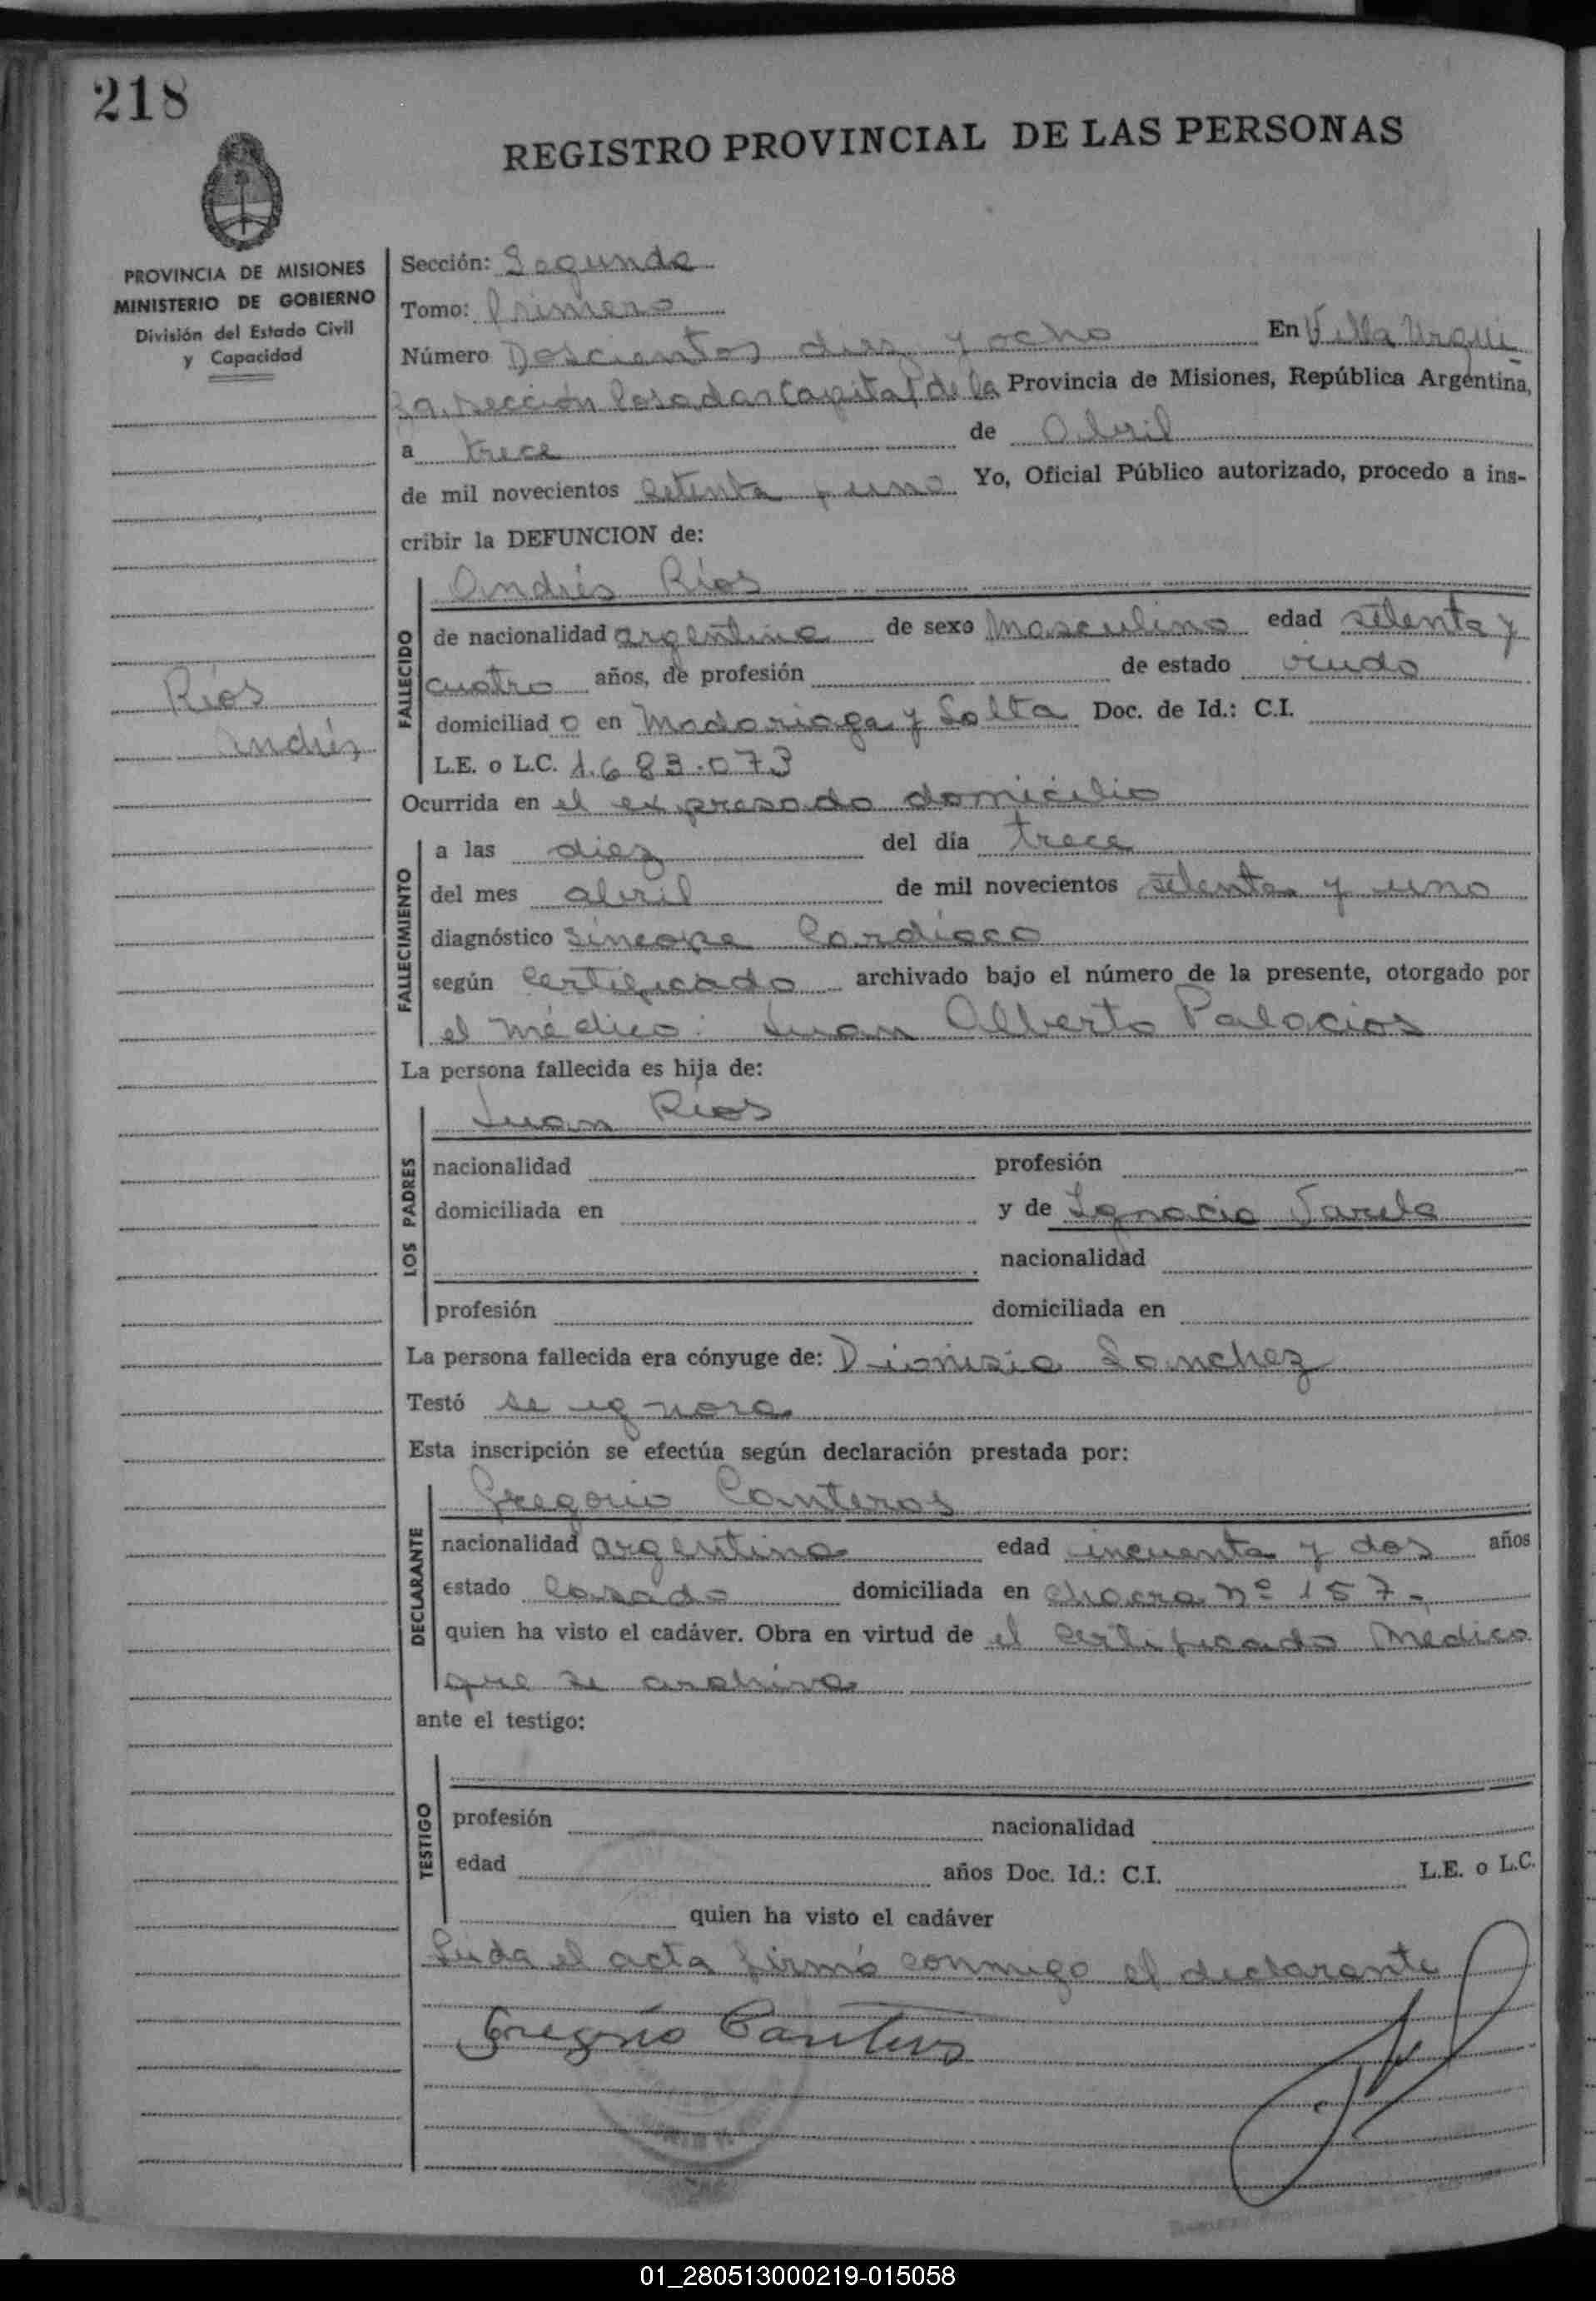 218
REGISTRO PROVINCIAL DE LAS PERSONAS
PROVINCIA DE MISIONES
MINISTERIO DE GOBIERNO
División del Estado Civil
y Capacidad
Ríos
Andrés
Sección: Segunda
Tomo: Primero
Número Doscientos diez y ocho En Villa Urqui
za, Sección Posadas Capital de la Provincia de Misiones, República Argentina,
a trece de Abril
de mil novecientos setenta y uno Yo, Oficial Público autorizado, procedo a ins-
cribir la DEFUNCION de:
FALLECIDO
Andrés Ríos
de nacionalidad argentina de sexo Masculino edad setenta y
cuatro años, de profesión de estado viudo
domiciliad o en Madariaga y Salta Doc. de Id.: C.I.
L.E. o L.C. 1.683.073
Ocurrida en el expresado domicilio
FALLECIMIENTO
a las diez del día trece
del mes abril de mil novecientos setenta y uno
diagnóstico Síncope Cardíaco
según Certificado archivado bajo el número de la presente, otorgado por
el médico: Juan Alberto Palacios
La persona fallecida es hija de:
LOS PADRES
Juan Ríos
nacionalidad profesión
domiciliada en y de Ignacia Varela
nacionalidad
profesión domiciliada en
La persona fallecida era cónyuge de: Dionisia Sanchez
Testó se ignora
Esta inscripción se efectúa según declaración prestada por:
DECLARANTE
Gregorio Canteros
nacionalidad argentina edad incuenta y dos años
estado Casado domiciliada en chacra nº 157-
quien ha visto el cadáver. Obra en virtud de el Certificado Medico
que se archiva
ante el testigo:
TESTIGO
profesión nacionalidad
edad años Doc. Id.: C.I. L.E. o L.C.
quien ha visto el cadáver
Leida el acta firmó conmigo el declarante
Gregorio Canteros
01_280513000219-015058